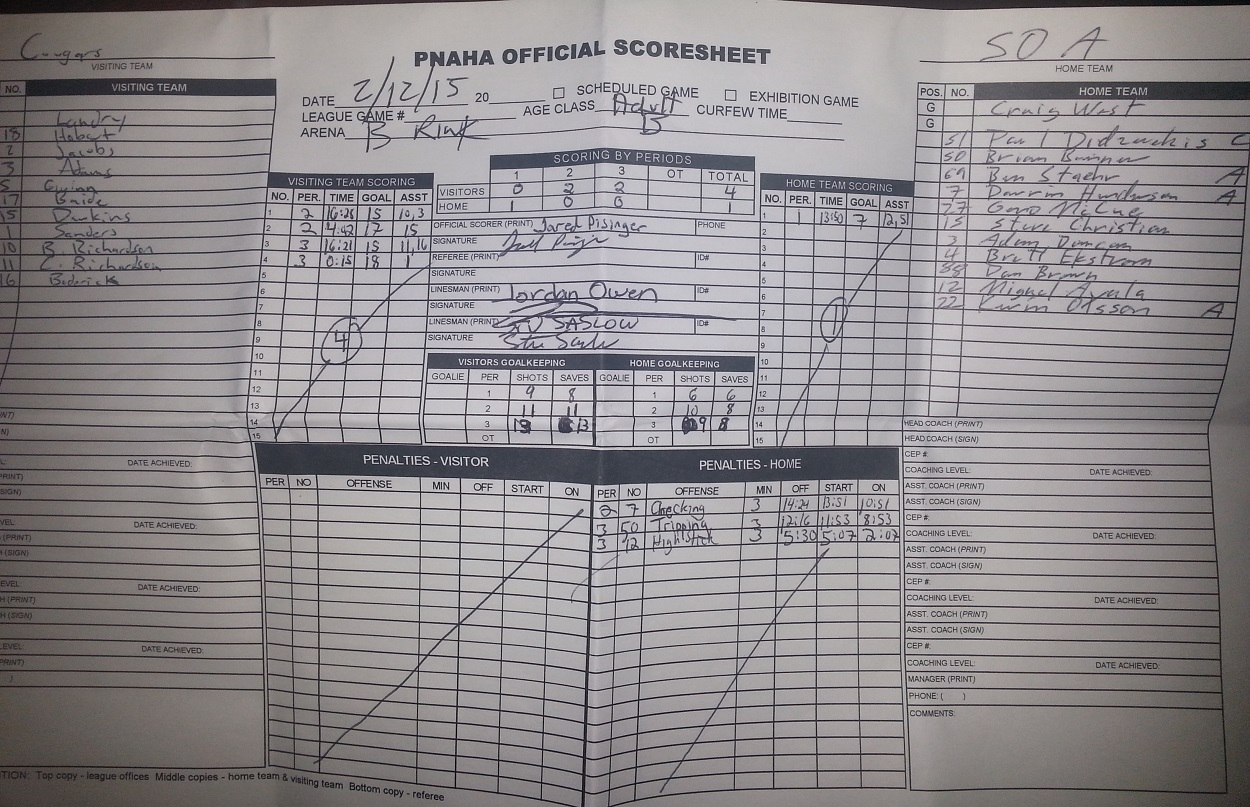 Cougars
VISITING TEAM
NO. VISITING TEAM
Landry
18 Hobart
2 Jacobs
3 Adams
5
17
15 Dukins
1 Sanders
10 B. Richardson
11 C. Richardson
16 Boderick
PNAHA OFFICIAL SCORESHEET
DATE 2/12/15 20 SCHEDULED GAME EXHIBITION GAME
LEAGUE GAME # AGE CLASS Adult B CURFEW TIME
ARENA B Rink
SCORING BY PERIODS
1 2 3 OT TOTAL
VISITORS 0 2 2 4
HOME 1 0 0 1
VISITING TEAM SCORING
NO. PER. TIME GOAL ASST
1 2 16:28 15 10,3
2 2 4:42 17 15
3 3 16:21 15 11,16
4 3 0:15 18 1
5
6
7
8
9
10
11
12
13
14
15
4
OFFICIAL SCORER (PRINT) Jared Pisinger PHONE
SIGNATURE
REFEREE (PRINT) ID#
SIGNATURE
LINESMAN (PRINT) Jordan Owen ID#
SIGNATURE
LINESMAN (PRINT) STU SASLOW ID#
SIGNATURE
HOME TEAM SCORING
NO. PER. TIME GOAL ASST
1 1 13:50 7 12,51
2
3
4
5
6
7
8
9
10
11
12
13
14
15
1
VISITORS GOALKEEPING HOME GOALKEEPING
GOALIE PER SHOTS SAVES GOALIE PER SHOTS SAVES
1 9 8 1 6 6
2 11 11 2 10 8
3 13 13 3 9 8
OT OT
PENALTIES - VISITOR
PER NO OFFENSE MIN OFF START ON
PENALTIES - HOME
PER NO OFFENSE MIN OFF START ON
2 7 Checking 3 14:24 13:51 10:51
3 50 Tripping 3 12:16 11:53 8:53
3 12 High stick 3 5:30 5:07 2:07
SO A
HOME TEAM
POS. NO. HOME TEAM
G Craig West
G
51 Paul Didzerekis C
50 Brian Bumper
69 Ben Staehr A
7 Darrin Hunderson A
27 Geno McCue
15 Steve Christian
3 Adam Duncan
4 Brett Ekstrom
88 Dan Brown
12 Miguel Ayala
22 Kevin Olsson A
HEAD COACH (PRINT)
HEAD COACH (SIGN)
CEP #:
COACHING LEVEL: DATE ACHIEVED:
ASST. COACH (PRINT)
ASST. COACH (SIGN)
CEP #:
COACHING LEVEL: DATE ACHIEVED:
ASST. COACH (PRINT)
ASST. COACH (SIGN)
CEP #:
COACHING LEVEL: DATE ACHIEVED:
ASST. COACH (PRINT)
ASST. COACH (SIGN)
CEP #:
COACHING LEVEL: DATE ACHIEVED:
MANAGER (PRINT)
PHONE: ( )
COMMENTS:
DATE ACHIEVED:
DATE ACHIEVED:
DATE ACHIEVED:
DATE ACHIEVED:
TION: Top copy - league offices Middle copies - home team & visiting team Bottom copy - referee